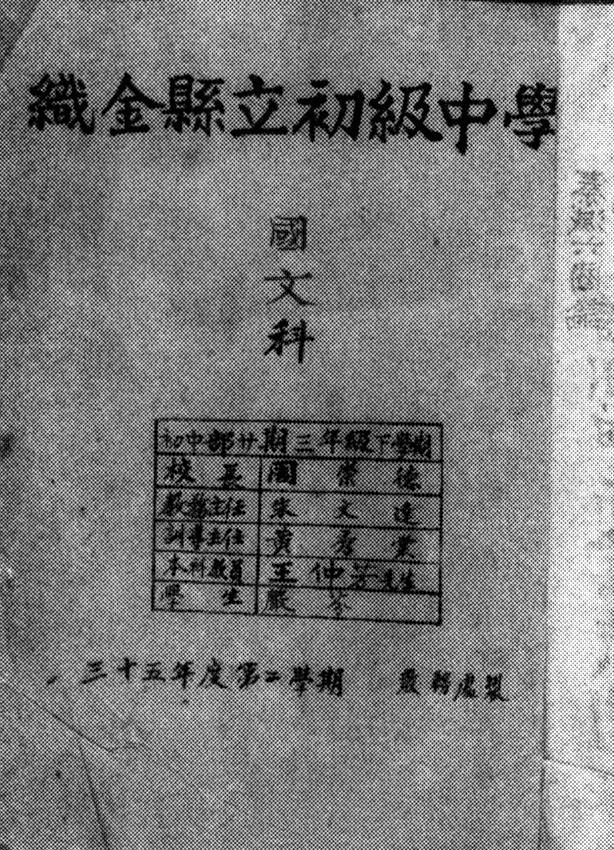 織金縣立初級中學
國
文
科
初中部廿期三年級下學期
校長 周崇德
教務主任 朱文達
訓導主任 黃秀業
本科教員 王仲芳先生
學生 嚴芬
三十五年度第二學期 教務處製